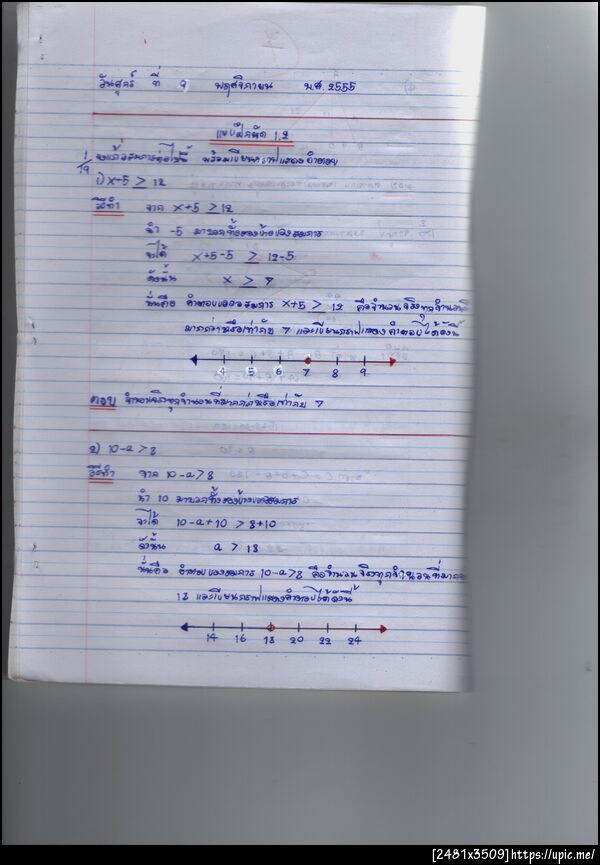 วันศุกร์ ที่ 9 พฤศจิกายน พ.ศ. 2555
แบบฝึกหัด 1.2
1/19 จงแก้อสมการต่อไปนี้ พร้อมเขียนกราฟแสดงคำตอบ
1) x+5 ≥ 12
วิธีทำ จาก x+5 ≥ 12
นำ -5 มาบวกทั้งสองข้างของสมการ
จะได้ x+5-5 ≥ 12-5
ดังนั้น x ≥ 7
นั่นคือ คำตอบของอสมการ x+5 ≥ 12 คือจำนวนจริงทุกจำนวนที่
มากกว่าหรือเท่ากับ 7 และเขียนกราฟแสดงคำตอบได้ดังนี้
4 5 6 7 8 9
ตอบ จำนวนจริงทุกจำนวนที่มากกว่าหรือเท่ากับ 7
2) 10-a > 8
วิธีทำ จาก 10-a > 8
นำ 10 มาบวกทั้งสองข้างของสมการ
จะได้ 10-a+10 > 8+10
ดังนั้น a > 18
นั่นคือ คำตอบของสมการ 10-a > 8 คือจำนวนจริงทุกจำนวนที่มาก
18 และเขียนกราฟแสดงคำตอบได้ดังนี้
14 16 18 20 22 24
[2481x3509]https://upic.me/